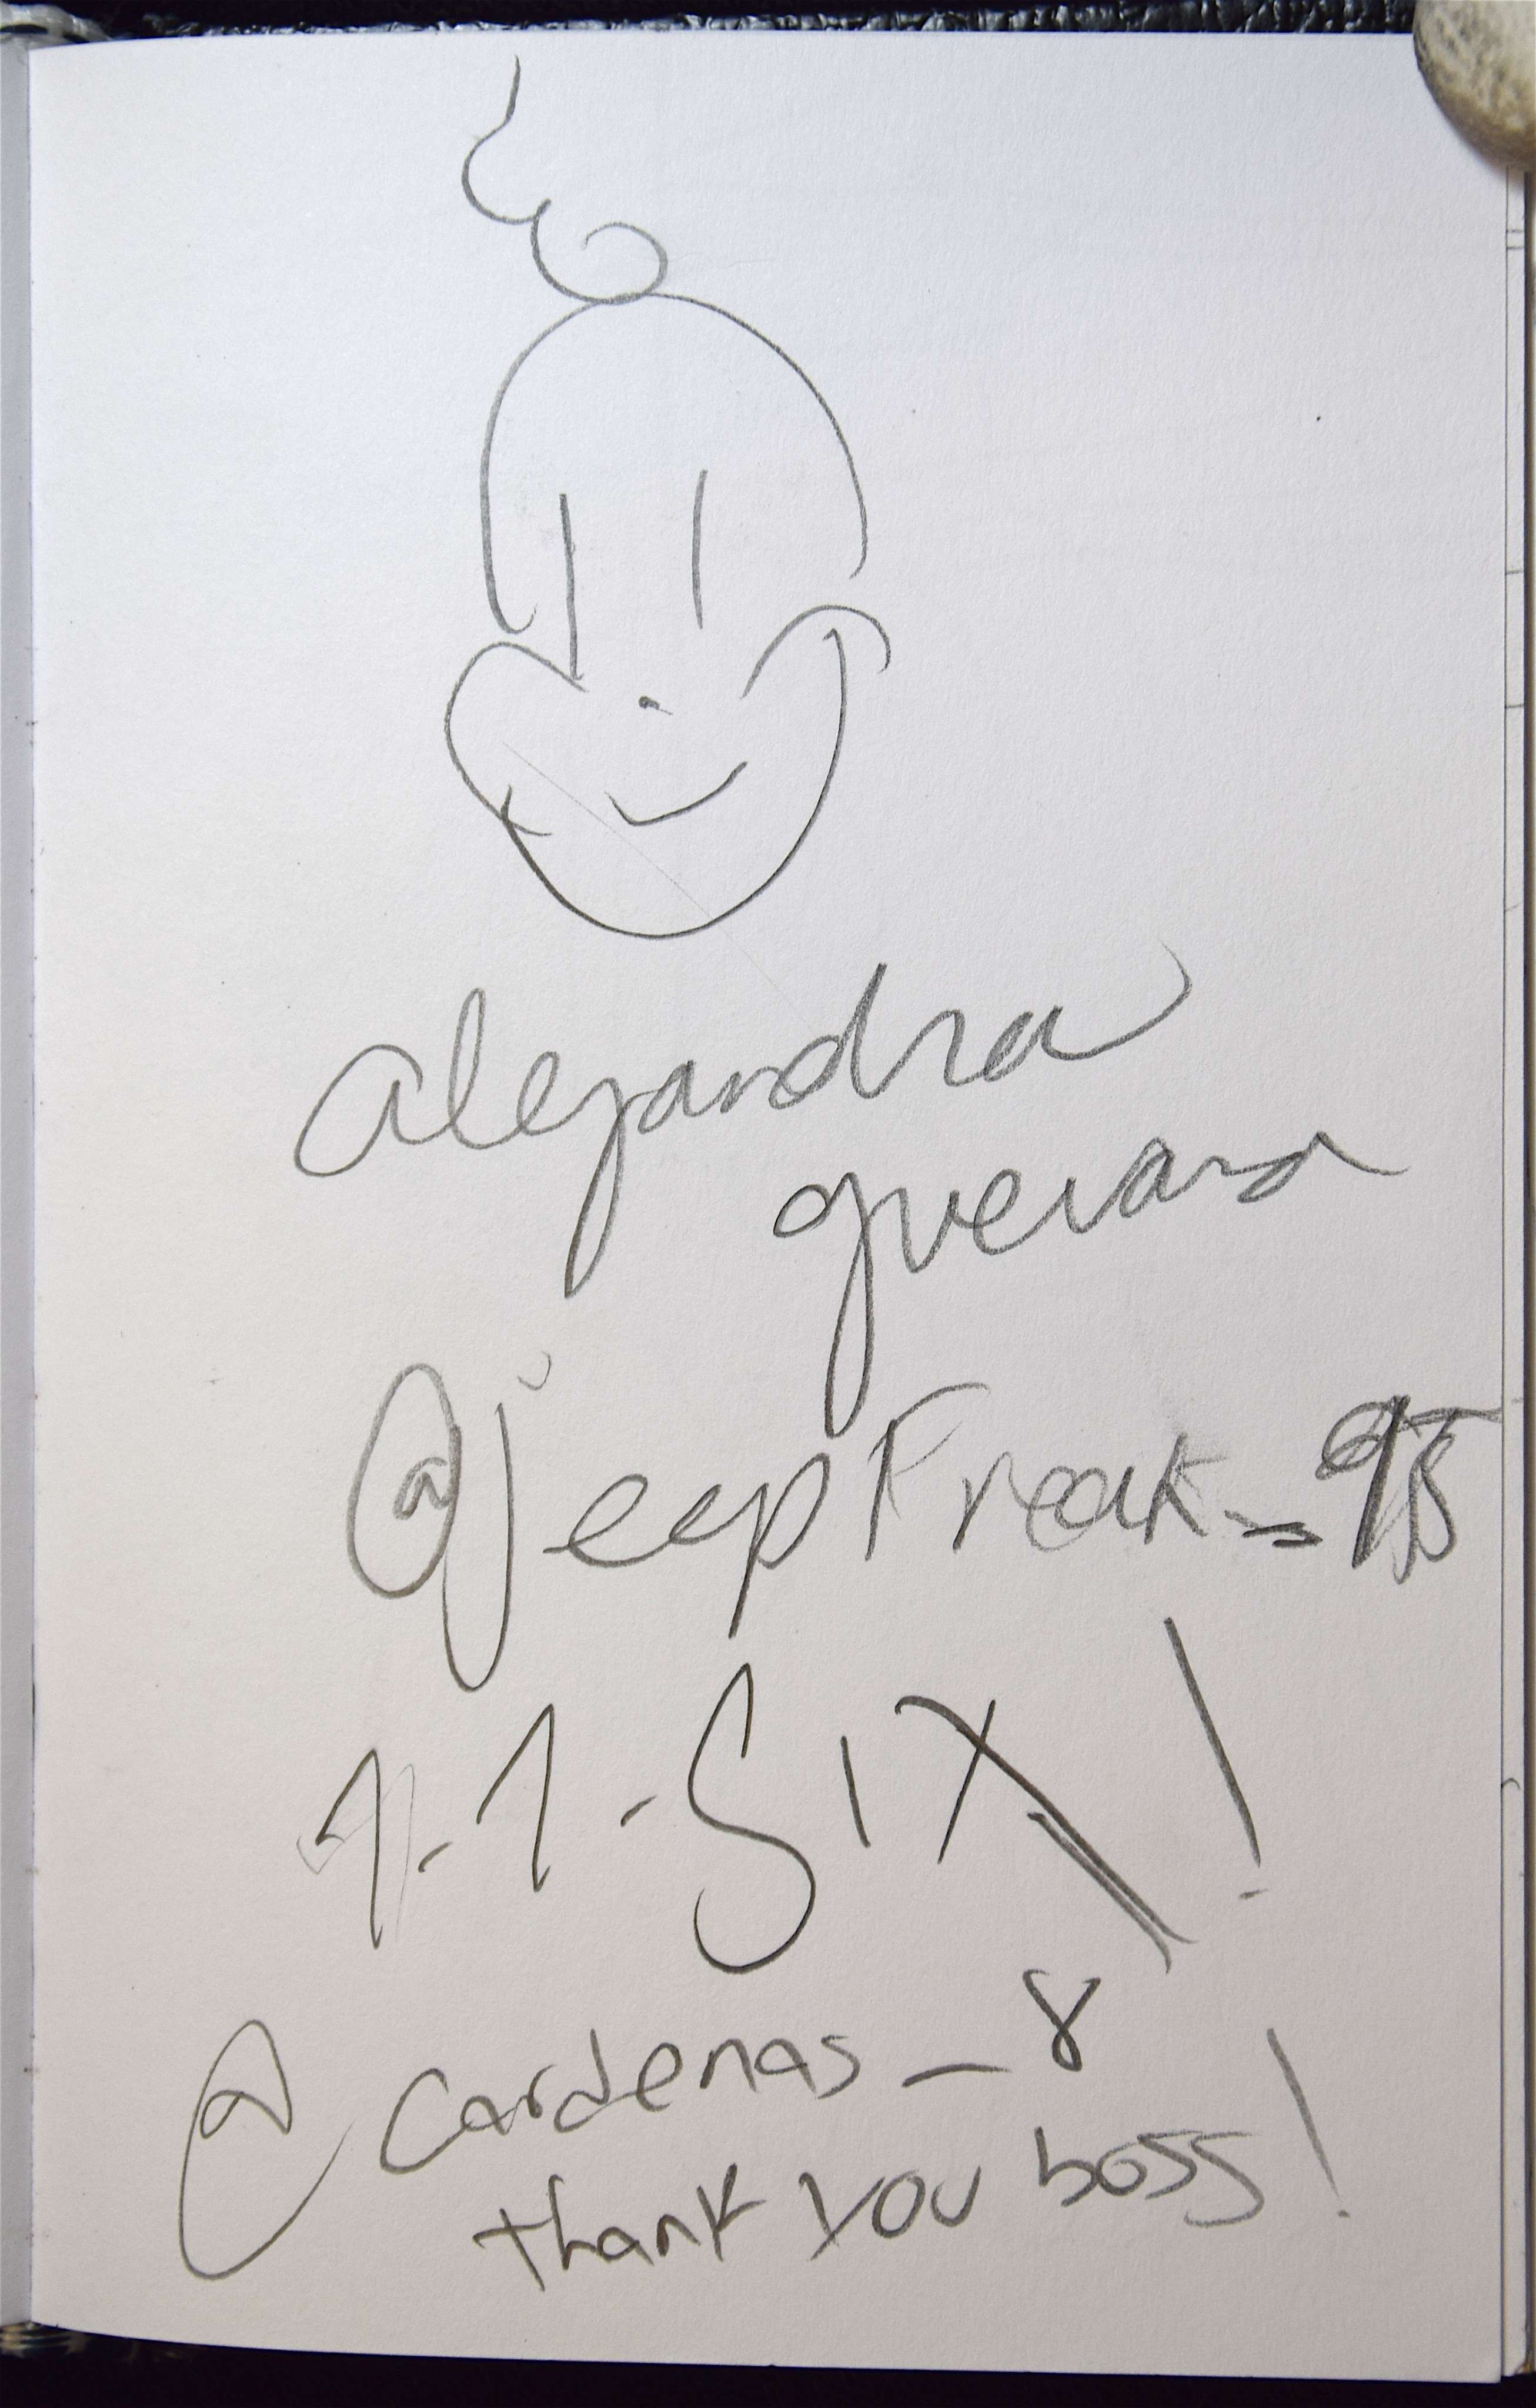 alejandra
guevara
@jeepFreak_95
1-1-SIX!
@cardenas_8
thank you boss!